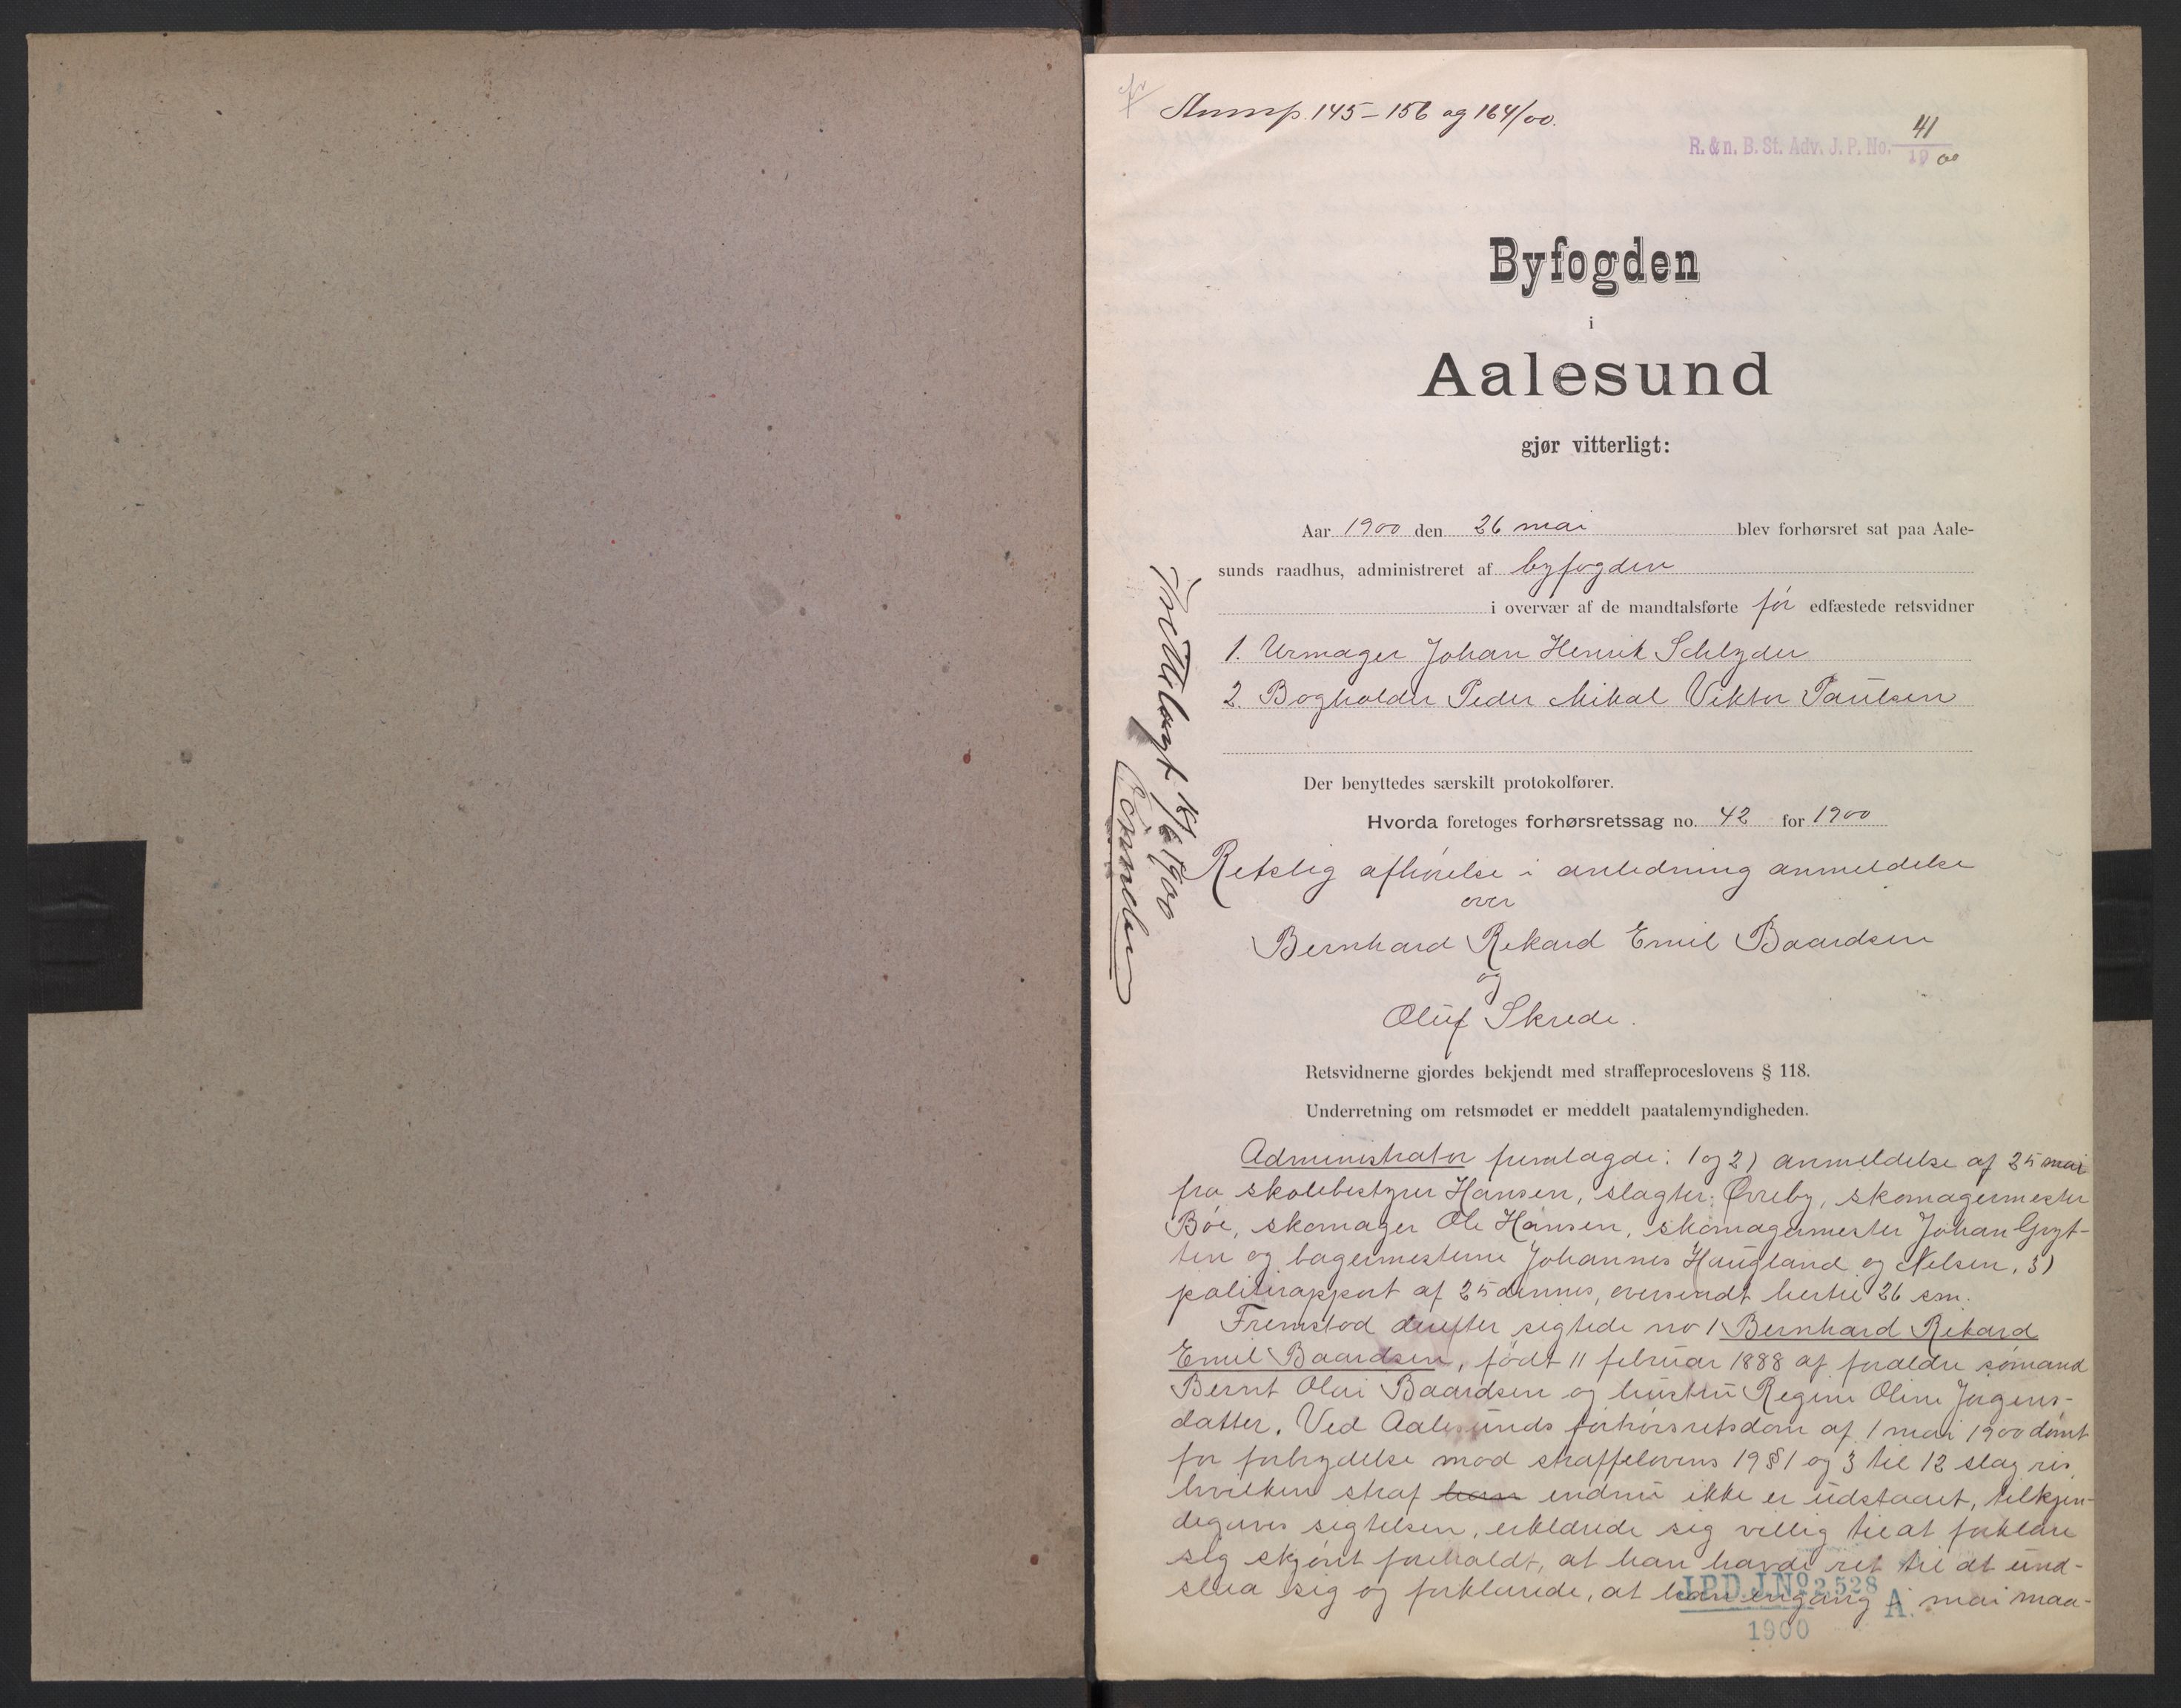 Stemp. 145 – 156 og 164/00.
41
R. & n. B. St. Adv. J. P. No. 19 00
Byfogden
i
Aalesund
gjør vitterligt:
Aar 1900 den 26 mai blev forhørsret sat paa Aale-
sunds raadhus, administreret af byfogden
i overvær af de mandtalsførte før edfæstede retsvidner
1. Urmager Johan Henrik Schlyder
2. Bogholder Peder Mikal Viktor Paulsen
Der benyttedes særskilt protokolfører.
Hvorda foretoges forhørsretssag no. 42 for 1900
Retslig afhørelse i anledning anmeldelse
over
Bernhard Rikard Emil Baardsen
og
Oluf Skrede.
Retsvidnerne gjordes bekjendt med straffeproceslovens § 118.
Underretning om retsmødet er meddelt paatalemyndigheden.
Administrator fremlagde: 1 og 2) anmeldelse af 25 mai
fra skolebestyrer Hansen, slagter Øvreby, skomagermester
Bøe, skomager Ole Hansen, skomagermester Johan Gryt-
ten og bagermesterne Johannes Haugland og Nelsen, 3)
politirapport af 25 dennes, oversendt hertil 26 sm.
Fremstod derefter sigtede no 1 Bernhard Rikard
Emil Baardsen, født 11 februar 1888 af forældre sømand
Bernt Olai Baardsen og hustru Regine Oline Jørgens-
datter. Ved Aalesunds forhørsretsdom af 1 mai 1900 dømt
for forbrydelse mod straffelovens 19 § 1 og 3 til 12 slag ris,
hvilken straf han endnu ikke er udstaaet, tilkjen-
degaves sigtelsen, erklærede sig villig til at forklare
sig skjønt foreholdt, at han havde ret til at und-
slaa sig og forklarede, at han engang i mai maa-
J.P.D.J.No 2528 A.
1900
1900